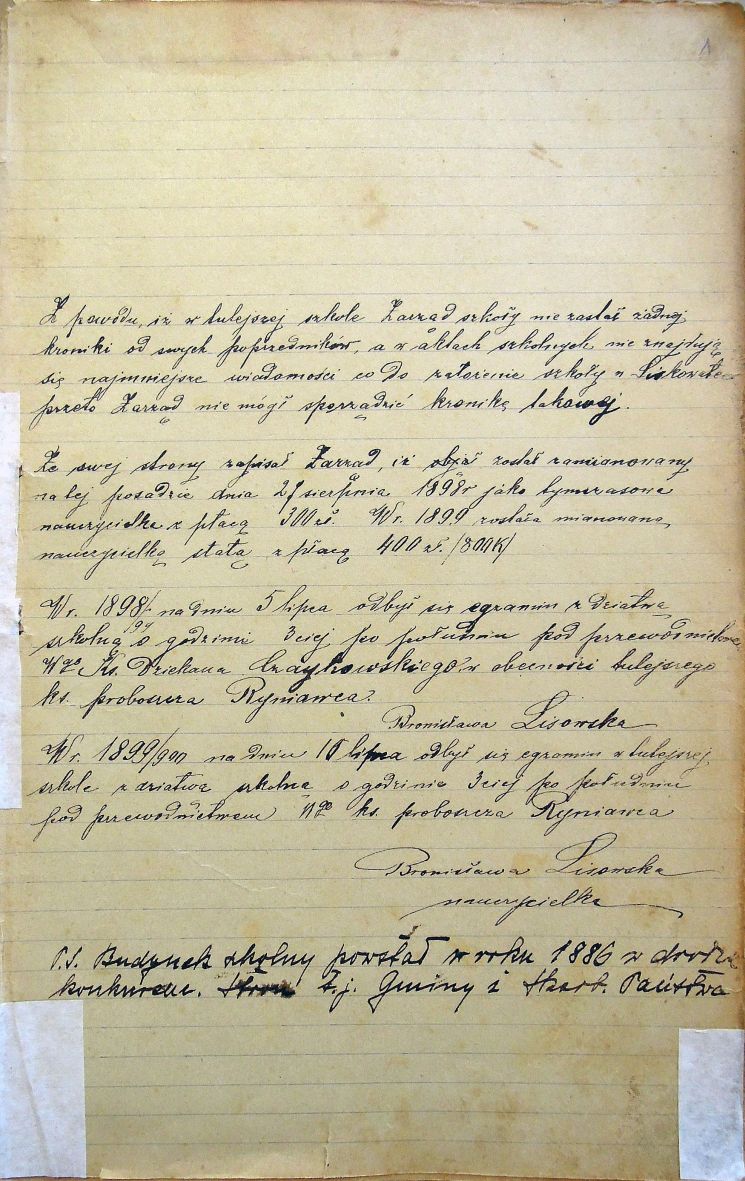 1
Z powodu, iż w tutejszej szkole Zarząd szkoły nie zastał żadnej
kroniki od swych poprzedników, a w aktach szkolnych nie znajdują
się najmniejsze wiadomości co do założenie szkoły w Liskowate
przeto Zarząd nie mógł sporządzić kronikę takowej.
Ze swej strony zapisał Zarząd, iż objął został zamianowany
na tej posadzie dnia 27 sierpnia 1898r jako tymczasowa
nauczycielka z płacą 300 zł. W r. 1899 została mianowana
nauczycielką stałą z płacą 400 zł. /800K/
W r. 1898/99 na dniu 5 lipca odbył się egzamin z dziatwą
szkolną o godzinie 3ciej po południu pod przewodnictwem
Wgo Ks. Dziekana Czaykowskiego, w obecności tutejszego
ks. proboszcza Ryniawca.
Bronisława Lisowska
W r. 1899/900 na dniu 10 lipca odbył się egzamin w tutejszej
szkole z dziatwą szkolną o godzinie 3ciej po południu
pod przewodnictwem Wgo ks. proboszcza Ryniawca
Bronisława Lisowska
nauczycielka
P.S. Budynek szkolny powstał w roku 1886 w drodze
t.j. Gminy i Skarb. Państwa